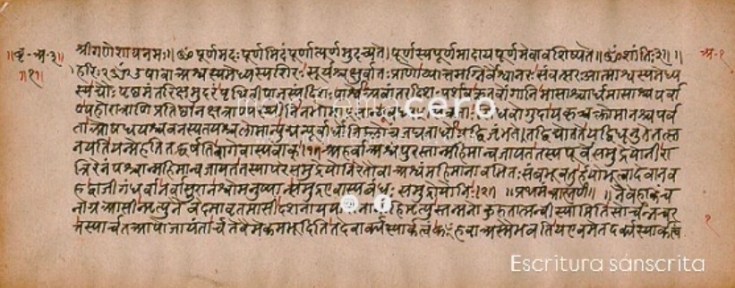 श्रीगणेशायनमः॥ ॐ पूर्णमदः पूर्णमिदं पूर्णात्पूर्णमुदच्यते। पूर्णस्यपूर्णमादाय पूर्णमेवावशिष्यते॥ ॐ शांतिः ३॥
हरिः ॐ उषावाअश्वस्यमेध्यस्यशिरः सूर्यश्चक्षुर्वातः प्राणोव्यात्तमग्निर्वैश्वानरः संवत्सरआत्माश्वस्यमेध्य
स्यद्यौः पृष्ठमंतरिक्षमुदरं पृथिवीपाजस्यंदिशः पार्श्वेअवांतरदिशः पर्शवऋतवोंगानिमासाश्चार्धमासाश्चपर्वा
ण्यहोरात्राणिप्रतिष्ठानक्षत्राण्यस्थीनिनभोमांसा गुदायकृच्चक्लोमानश्चपर्व
ताओषधयश्चवनस्पतयश्चलोमान्युद्यन्पूर्वार्धोनिम्लोचन्जघनार्धोयद्विजृंभते। तद्विद्योततेयद्विधूनुतेतत्स्त
नयतियन्मेहतितद्वर्षतिवागेवास्यवाक्॥१॥ अहर्वाअश्वंपुरस्तान्महिमान्वजायततस्यपूर्वेसमुद्रेयोनीरा
त्रिरेनंपश्चान्महिमान्वजायततस्यापरेसमुद्रेयोनिरेतौवाअश्वंमहिमानावभितः संबभूवतुर्हयोभूत्वादेवानव
हद्वाजीगंधर्वानर्वासुरानश्वोमनुष्यान्समुद्रएवास्यबंधुः समुद्रोयोनिः॥२॥ प्रथमंब्राह्मणं॥ नैवेहकिंच
नाग्रआसीन्मृत्युनैवेदमावृतमासीदशनायया हिमृत्युस्तन्मनोकुरुतात्मन्वीस्यामितिसोर्चन्नचर
त्तस्यार्चतआपोजायंतार्चतेवैमेकमभूदितितदेवार्क्यस्यार्कत्वंकःहवाअस्मैभवतियएवमेतदर्क्यस्यार्कत्वं
Escritura sánscrita